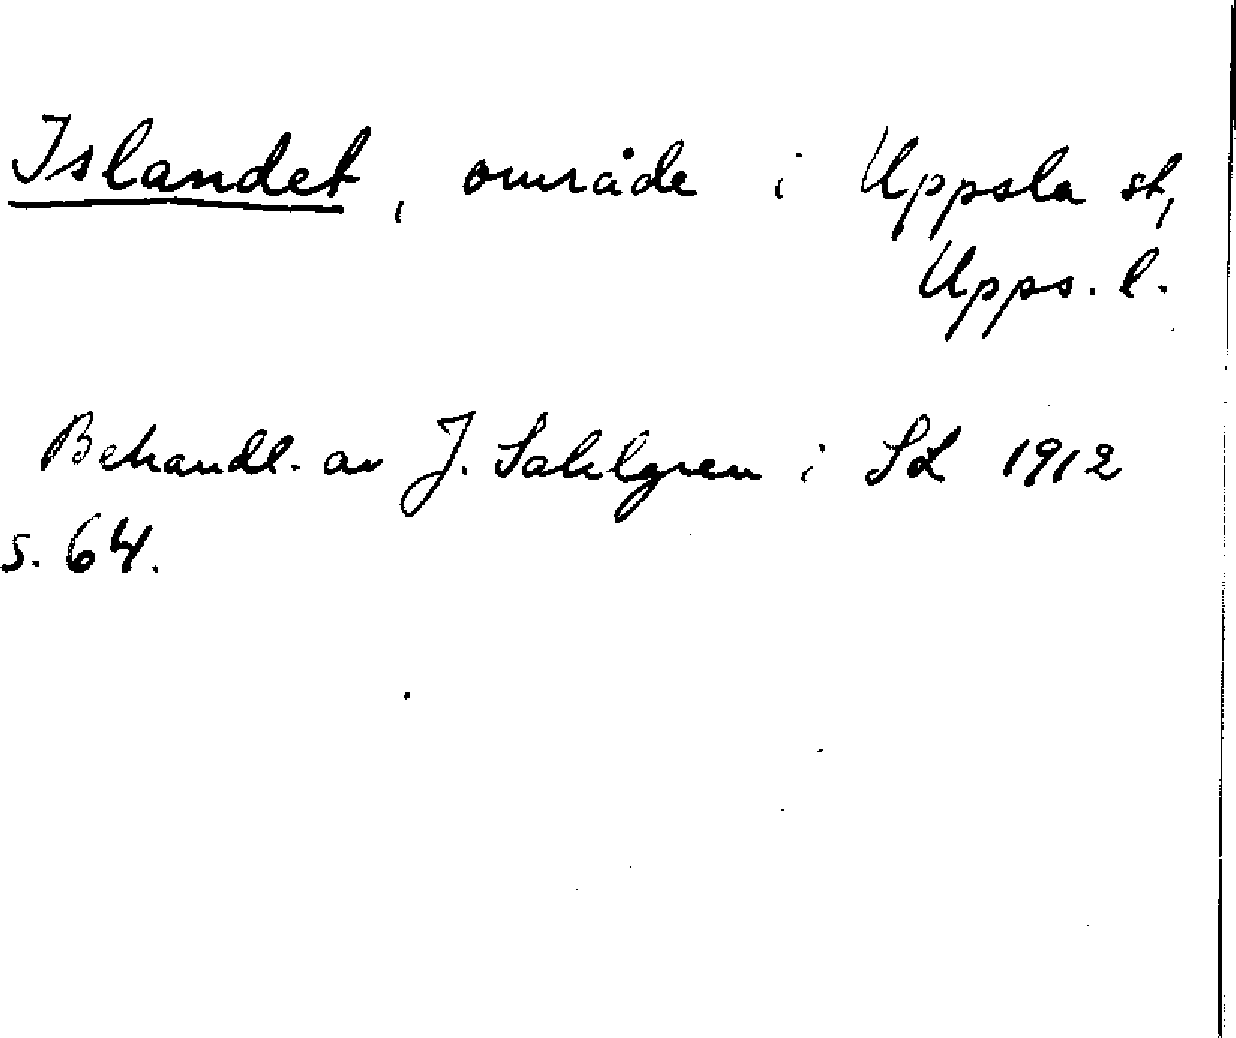 Islandet, område i Uppsala st,
Upps. l.
Behandl. av J. Sahlgren i SL 1912
s. 64.